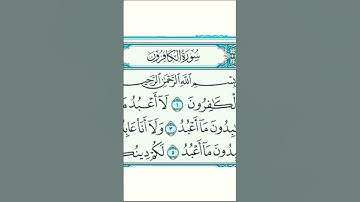 سُورَةُ الكَافِرُونَ
بِسْمِ اللَّهِ الرَّحْمَٰنِ الرَّحِيمِ
لْكَٰفِرُونَ ١ لَآ أَعْبُدُ مَا
بِدُونَ مَآ أَعْبُدُ ٣ وَلَآ أَنَا۠ عَابِ
بِدُونَ مَآ أَعْبُدُ ٥ لَكُمْ دِينُكُ